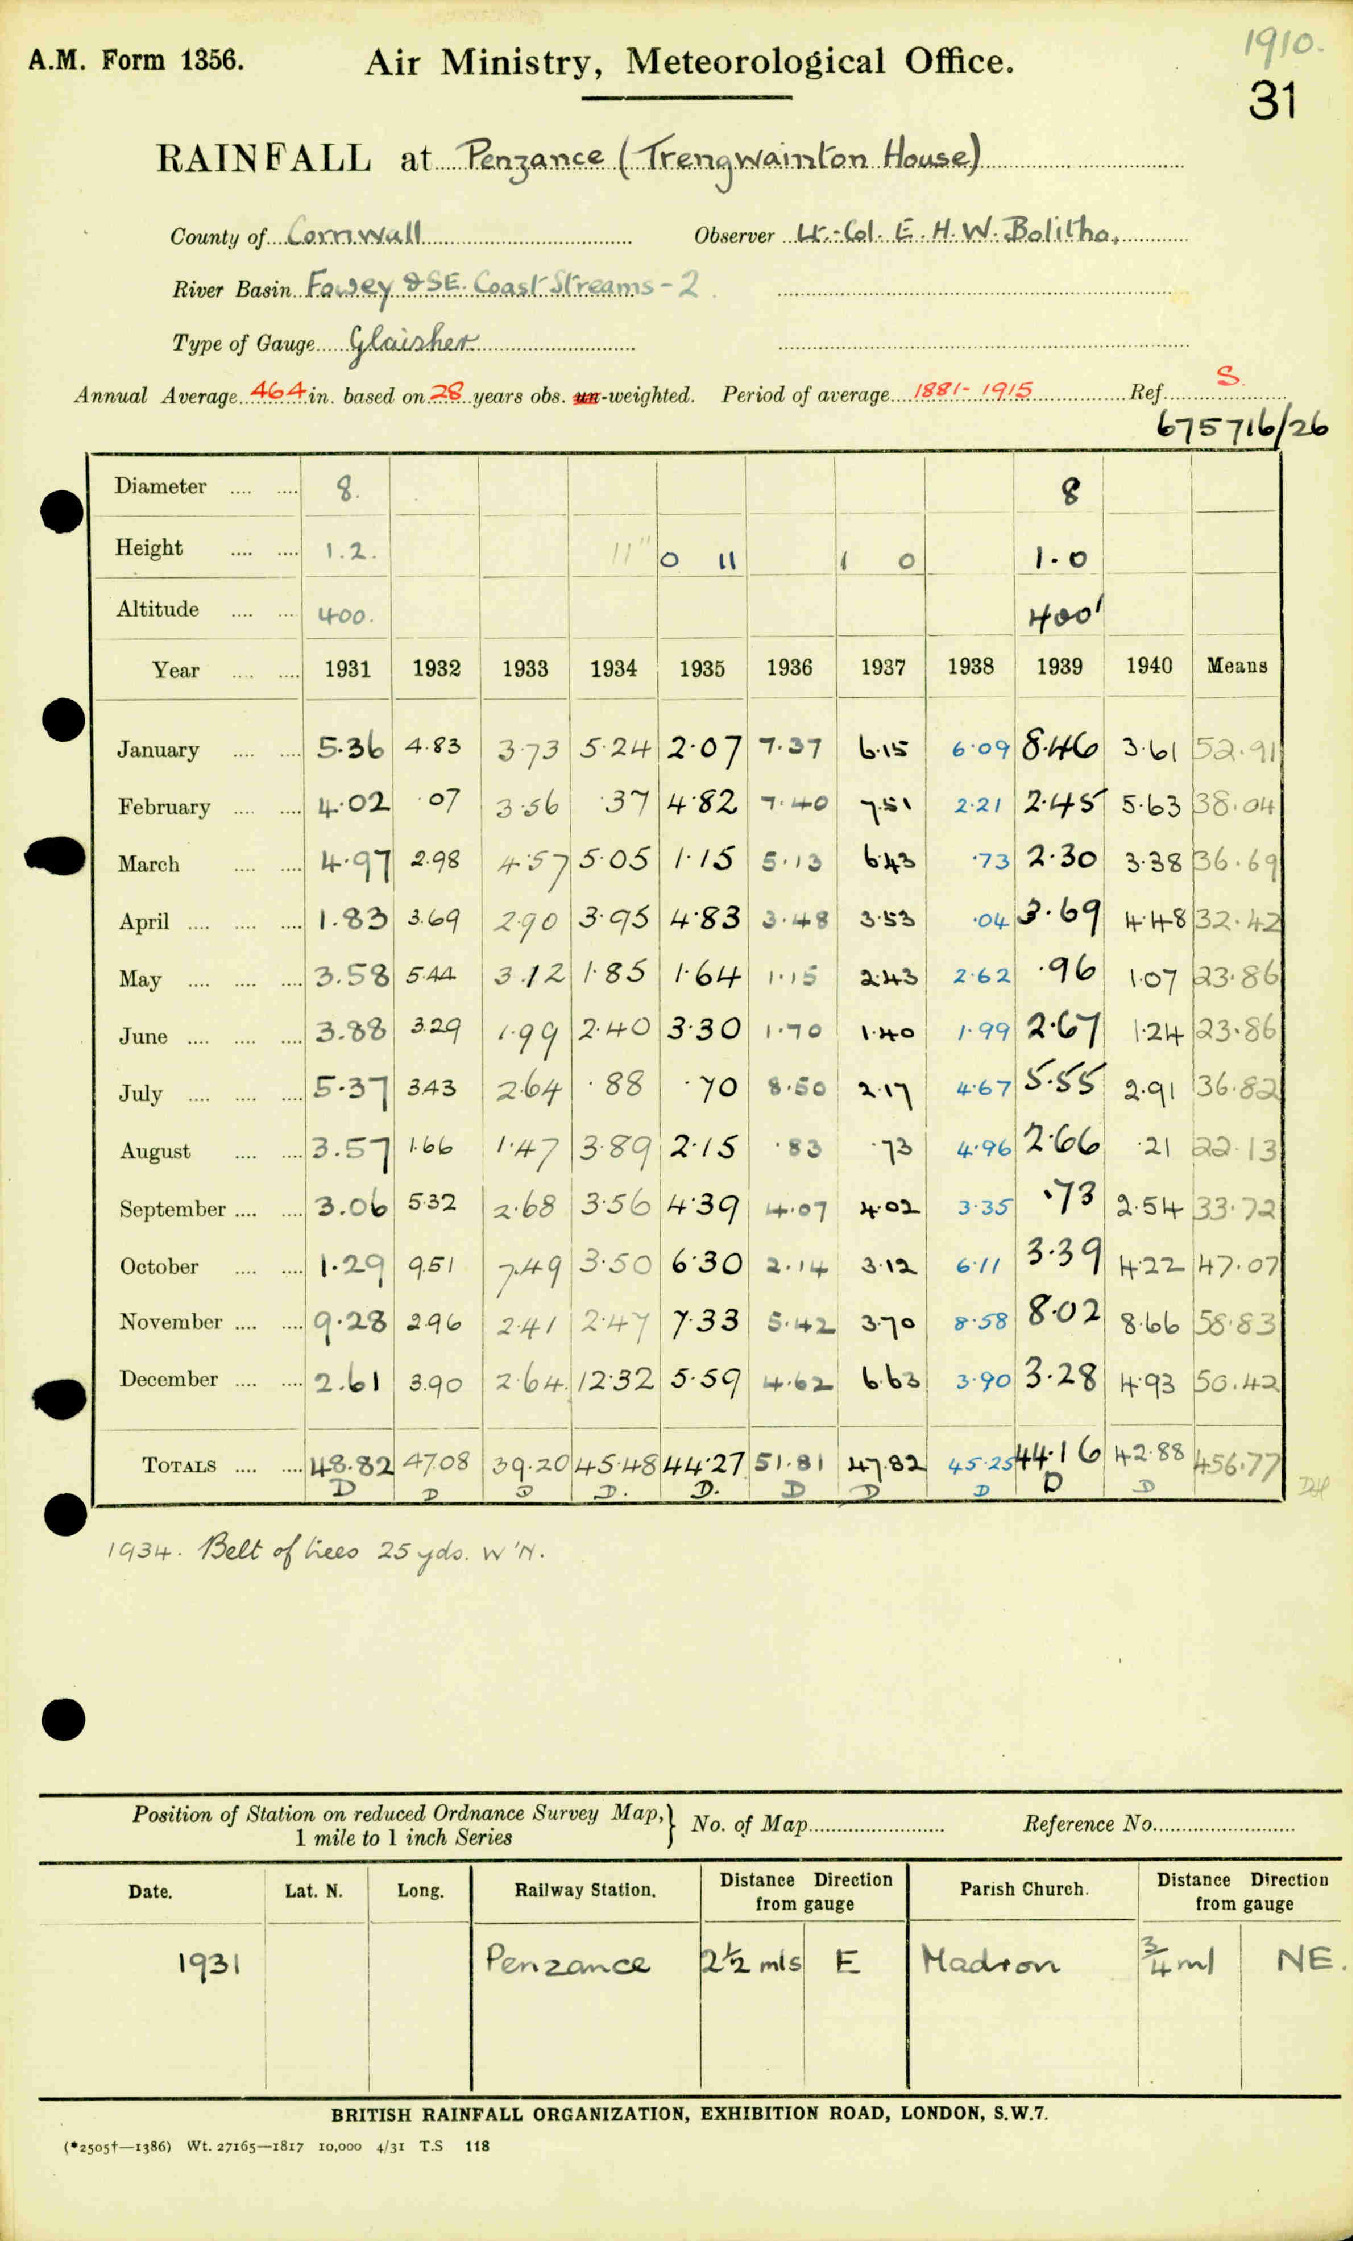 1910.
A.M. Form 1356. Air Ministry, Meteorological Office.
31
RAINFALL at Penzance (Trengwainton House)
County of Cornwall Observer Lt.-Col. E. H. W. Bolitho.
River Basin Fowey & SE. Coast Streams - 2
Type of Gauge Glaisher
Annual Average 46.4 in. based on 28 years obs. un-weighted. Period of average 1881-1915 Ref. S.
675716/26
Diameter 8. 8
Height 1.2. 11" 0 11 1 0 1.0
Altitude 400. 400'
Year 1931 1932 1933 1934 1935 1936 1937 1938 1939 1940 Means
January 5.36 4.83 3.73 5.24 2.07 7.37 6.15 6.09 8.46 3.61 52.91
February 4.02 .07 3.56 .37 4.82 7.40 7.51 2.21 2.45 5.63 38.04
March 4.97 2.98 4.57 5.05 1.15 5.13 6.43 .73 2.30 3.38 36.69
April 1.83 3.69 2.90 3.95 4.83 3.48 3.53 .04 3.69 4.48 32.42
May 3.58 5.44 3.12 1.85 1.64 1.15 2.43 2.62 .96 1.07 23.86
June 3.88 3.29 1.99 2.40 3.30 1.70 1.40 1.99 2.67 1.24 23.86
July 5.37 3.43 2.64 .88 .70 8.50 2.17 4.67 5.55 2.91 36.82
August 3.57 1.66 1.47 3.89 2.15 .83 .73 4.96 2.66 .21 22.13
September 3.06 5.32 2.68 3.56 4.39 4.07 4.02 3.35 .73 2.54 33.72
October 1.29 9.51 7.49 3.50 6.30 2.14 3.12 6.11 3.39 4.22 47.07
November 9.28 2.96 2.41 2.47 7.33 5.42 3.70 8.58 8.02 8.66 58.83
December 2.61 3.90 2.64 12.32 5.59 4.62 6.63 3.90 3.28 4.93 50.42
TOTALS 48.82 47.08 39.20 45.48 44.27 51.81 47.82 45.25 44.16 42.88 456.77
D D D D. D. D D D D D
1934. Belt of trees 25 yds. W'N.
Position of Station on reduced Ordnance Survey Map, 1 mile to 1 inch Series } No. of Map Reference No.
Date. Lat. N. Long. Railway Station. Distance Direction from gauge Parish Church. Distance Direction from gauge
1931 Penzance 2½ mls E Madron ¾ ml NE.
BRITISH RAINFALL ORGANIZATION, EXHIBITION ROAD, LONDON, S.W.7.
(*2505†—1386) Wt. 27165—1817 10,000 4/31 T.S 118